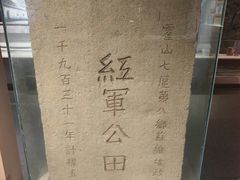 霍山七區第八鄉蘇維埃政
紅軍公田
一千九百三十一年計種五